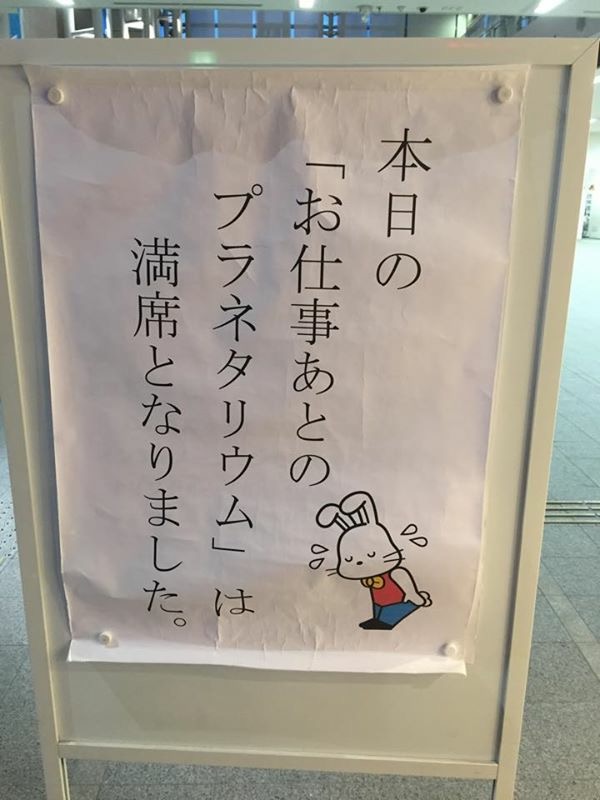 本日の
「お仕事あとの
プラネタリウム」は
満席となりました。